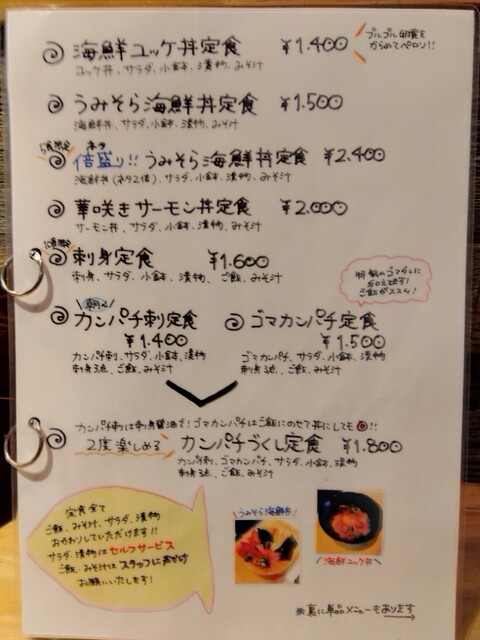 海鮮ユッケ丼定食 ¥1.400
ユッケ丼、サラダ、小鉢、漬物、みそ汁
プルプル卵黄を
からめてペロリ!!
うみそら海鮮丼定食 ¥1.500
海鮮丼、サラダ、小鉢、漬物、みそ汁
5食限定
ネタ
倍盛り!! うみそら海鮮丼定食 ¥2.400
海鮮丼(ネタ2倍)、サラダ、小鉢、漬物、みそ汁
華咲きサーモン丼定食 ¥2.000
サーモン丼、サラダ、小鉢、漬物、みそ汁
10食限定
刺身定食 ¥1.600
刺身、サラダ、小鉢、漬物、ご飯、みそ汁
特製のゴマダレに
和えてます!
ご飯がススム!
朝〆
カンパチ刺定食
¥1.400
カンパチ刺、サラダ、小鉢、漬物
刺身3点、ご飯、みそ汁
ゴマカンパチ定食
¥1.500
ゴマカンパチ、サラダ、小鉢、漬物
刺身3点、ご飯、みそ汁
カンパチ刺は刺身醤油で!ゴマカンパチはご飯にのせて丼にしても◎!!
2度楽しめる カンパチづくし定食 ¥1.800
カンパチ刺、ゴマカンパチ、サラダ、小鉢、漬物
刺身3点、ご飯、みそ汁
定食全て
ご飯、みそ汁、サラダ、漬物
おかわりしていただけます!!
サラダ、漬物はセルフサービス
ご飯、みそ汁はスタッフにお声がけ
お願いいたします!
うみそら海鮮丼
海鮮ユッケ丼
※裏に単品メニューもあります